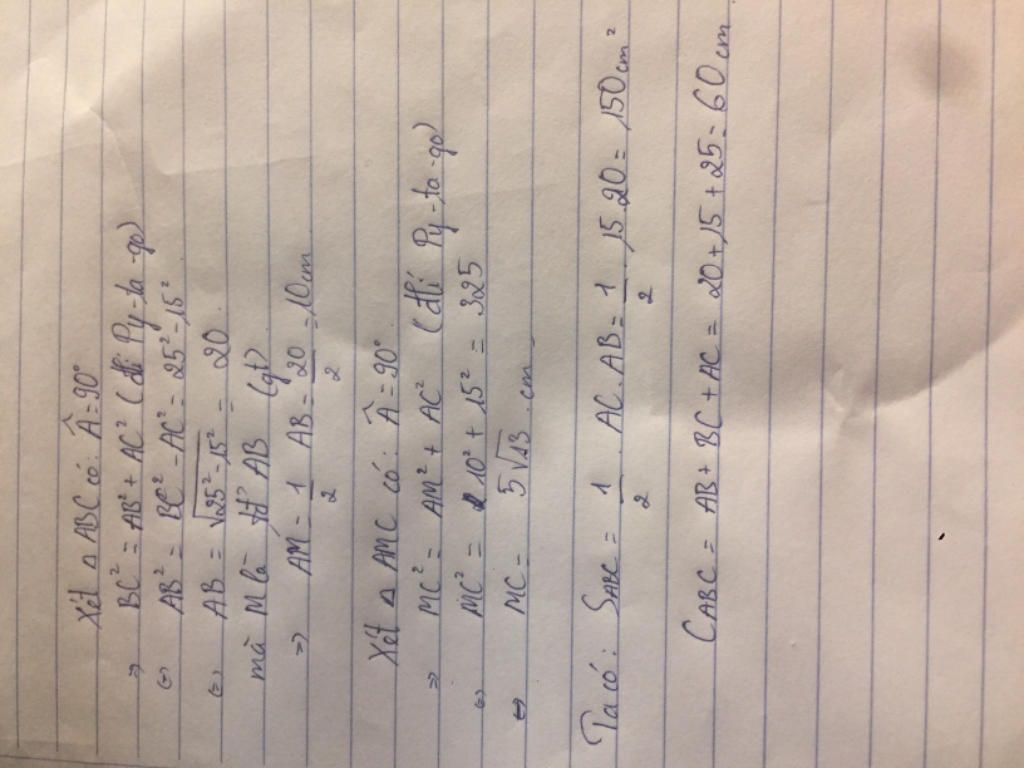 Xét △ ABC có: Â = 90°
⇒ BC² = AB² + AC² (đlí Py-ta-go)
⇔ AB² = BC² - AC² = 25² - 15²
⇔ AB = √25² - 15² = 20
mà M là tđ AB (gt)
⇒ AM = 1/2 AB = 20/2 = 10cm
Xét △ AMC có: Â = 90°
⇒ MC² = AM² + AC² (đlí Py-ta-go)
⇔ MC² = 10² + 15² = 325
⇔ MC = 5√13 cm
Ta có: SABC = 1/2 . AC . AB = 1/2 . 15 . 20 = 150 cm²
CABC = AB + BC + AC = 20 + 15 + 25 = 60 cm